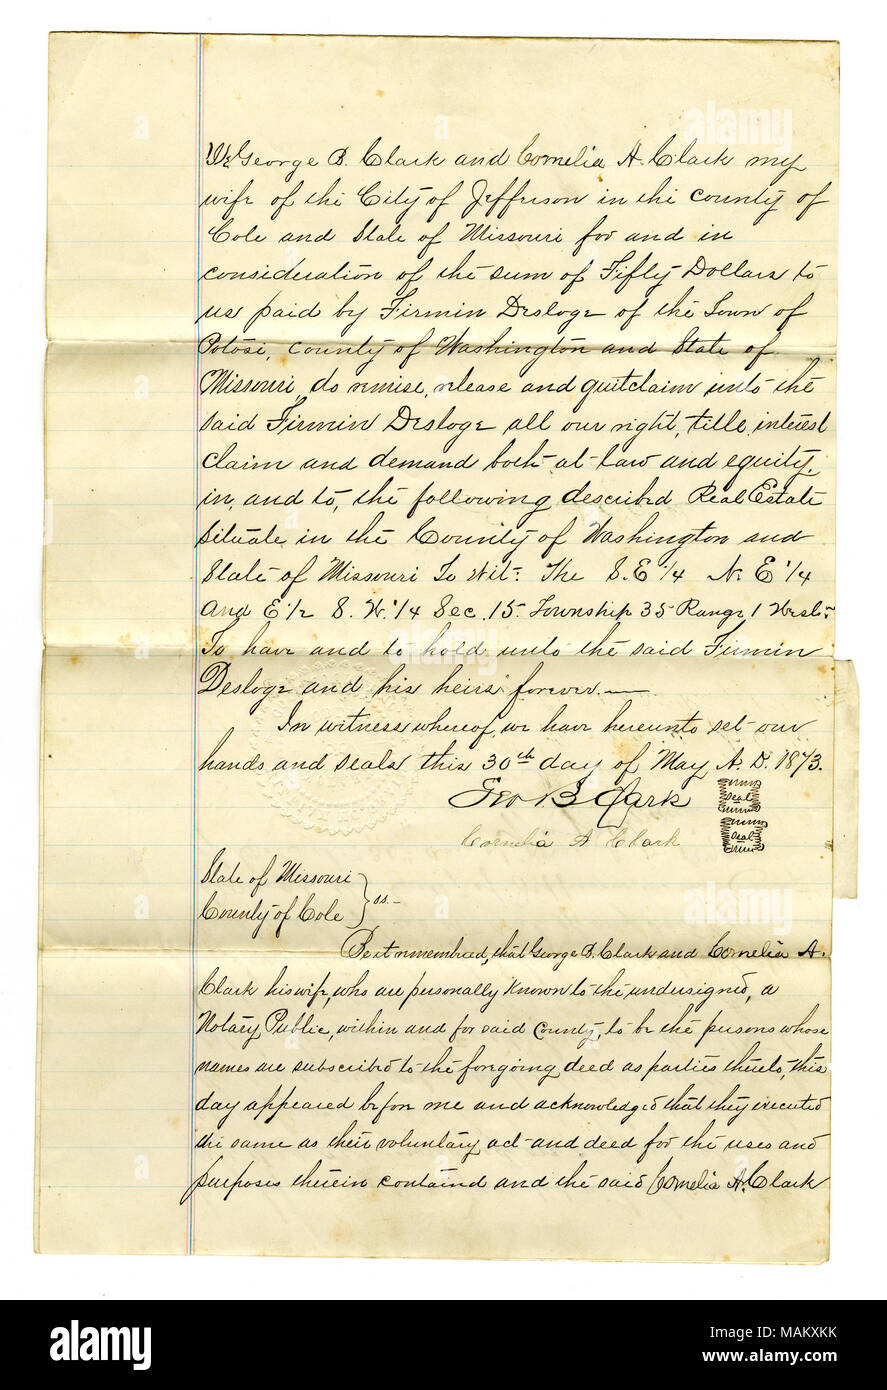 We George B. Clark and Cornelia A. Clark my
wife of the City of Jefferson in the county of
Cole and State of Missouri for and in
consideration of the sum of Fifty Dollars to
us paid by Firmin Desloge of the Town of
Potosi, County of Washington and State of
Missouri, do remise, release and quitclaim unto the
said Firmin Desloge all our right, title, interest
claim and demand both at law and equity,
in, and to, the following described Real Estate
situate in the County of Washington and
State of Missouri To Wit: The S.E 1/4 N. E 1/4
and E 1/2 S. W. 1/4 Sec. 15 Township 35 Range 1 West.
To have and to hold unto the said Firmin
Desloge and his heirs forever.—
In witness whereof, we have hereunto set our
hands and seals this 30th day of May A. D. 1873.
Geo B Clark Seal
Cornelia A Clark Seal
State of Missouri
County of Cole } ss.
Be it remembered, that George B. Clark and Cornelia A.
Clark his wife, who are personally known to the undersigned, a
Notary Public, within and for said County, to be the persons whose
names are subscribed to the foregoing deed as parties thereto, this
day appeared before me and acknowledged that they executed
the same as their voluntary act and deed for the uses and
purposes therein contained and the said Cornelia A. Clark
alamy
Image ID: MAKXKK
www.alamy.com